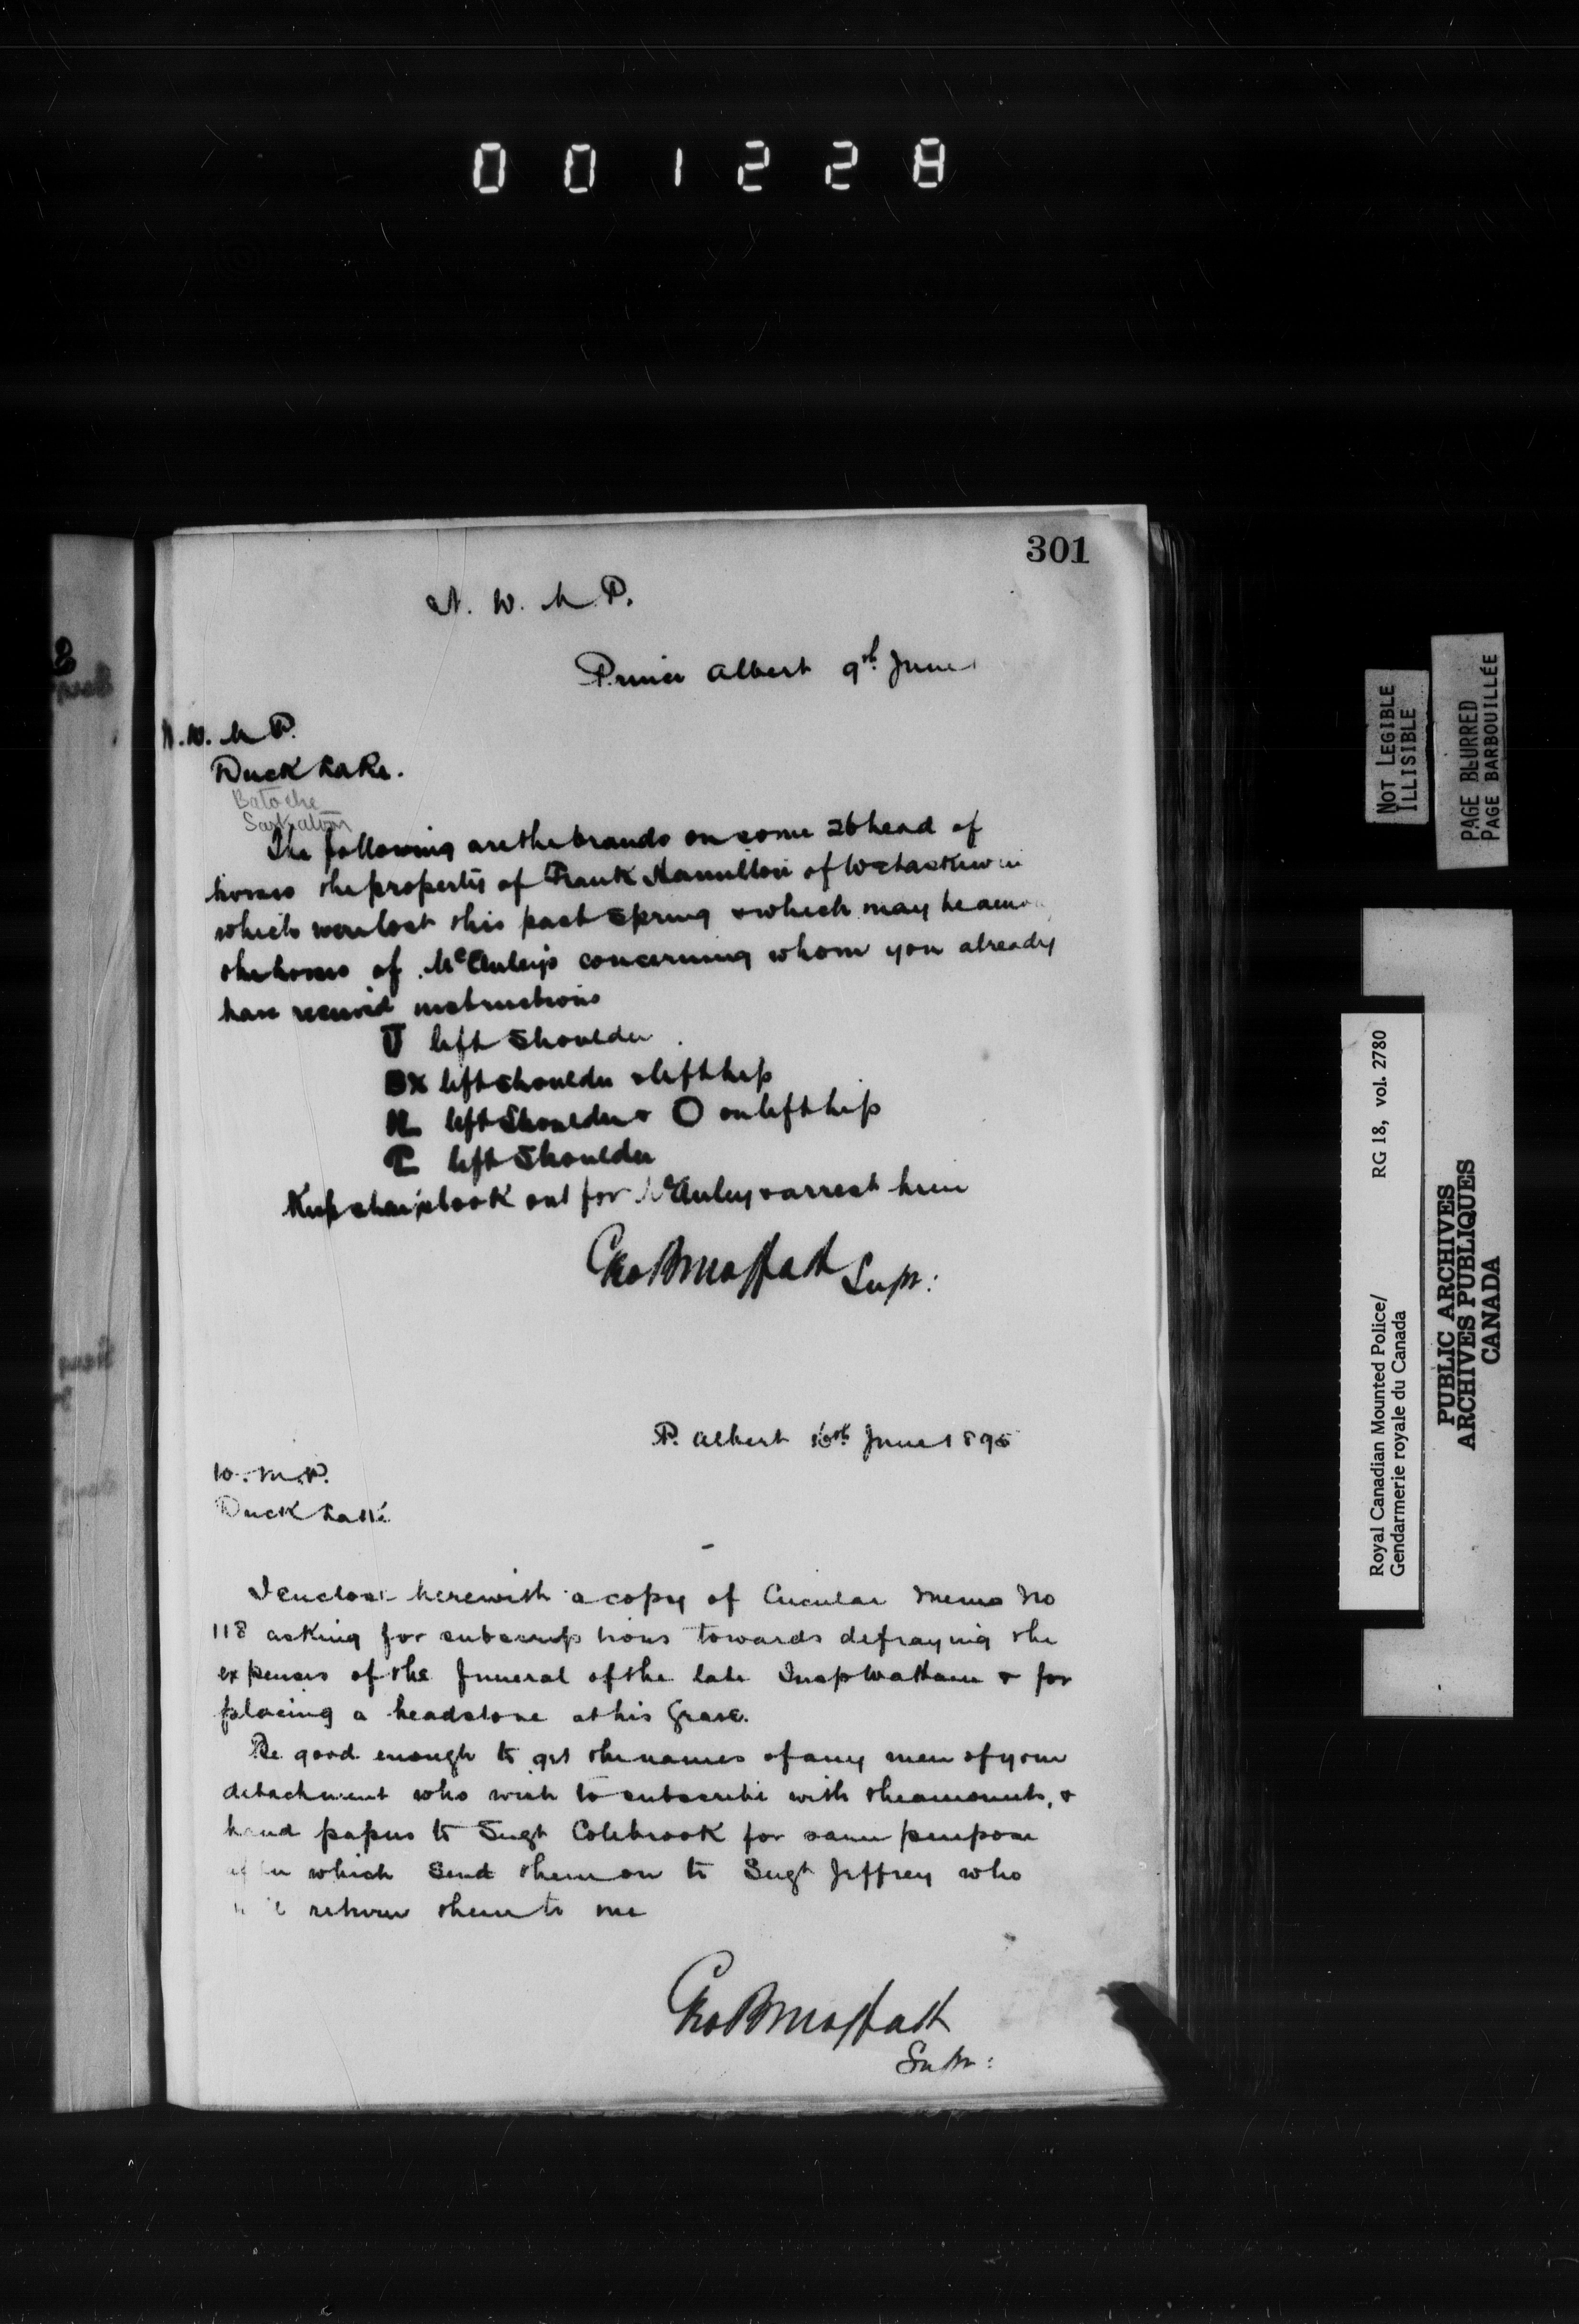 001228
301
N. W. M. P.
Prince Albert 9th June
N. W. M. P.
Duck Lake.
Batoche
Saskatoon
The following are the brands on some 26 head of
horses the property of Frank Hamilton of Wetaskewin
which were lost this past Spring & which may be among
the horses of McAuleys concerning whom you already
have received instructions
J left Shoulder
BX left shoulder & left hip
left Shoulder & O on left hip
left Shoulder
Keep sharp look out for McAuley & arrest him
Geo B Moffatt Supt:
P. Albert 16th June 1895
W. M. P.
Duck Lake
I enclose herewith a copy of Circular Memo No
118 asking for subscriptions towards defraying the
expenses of the funeral of the late Insp Wattam & for
placing a headstone at his Grave.
Be good enough to get the names of any men of your
detachment who wish to subscribe with the amounts, &
hand papers to Sergt Colebrook for same purpose
after which Send them on to Sergt Jeffrey who
will return them to me
Geo B Moffatt
Supt:
NOT LEGIBLE
ILLISIBLE
PAGE BLURRED
PAGE BARBOUILLÉE
Royal Canadian Mounted Police/ RG 18, vol. 2780
Gendarmerie royale du Canada
PUBLIC ARCHIVES
ARCHIVES PUBLIQUES
CANADA